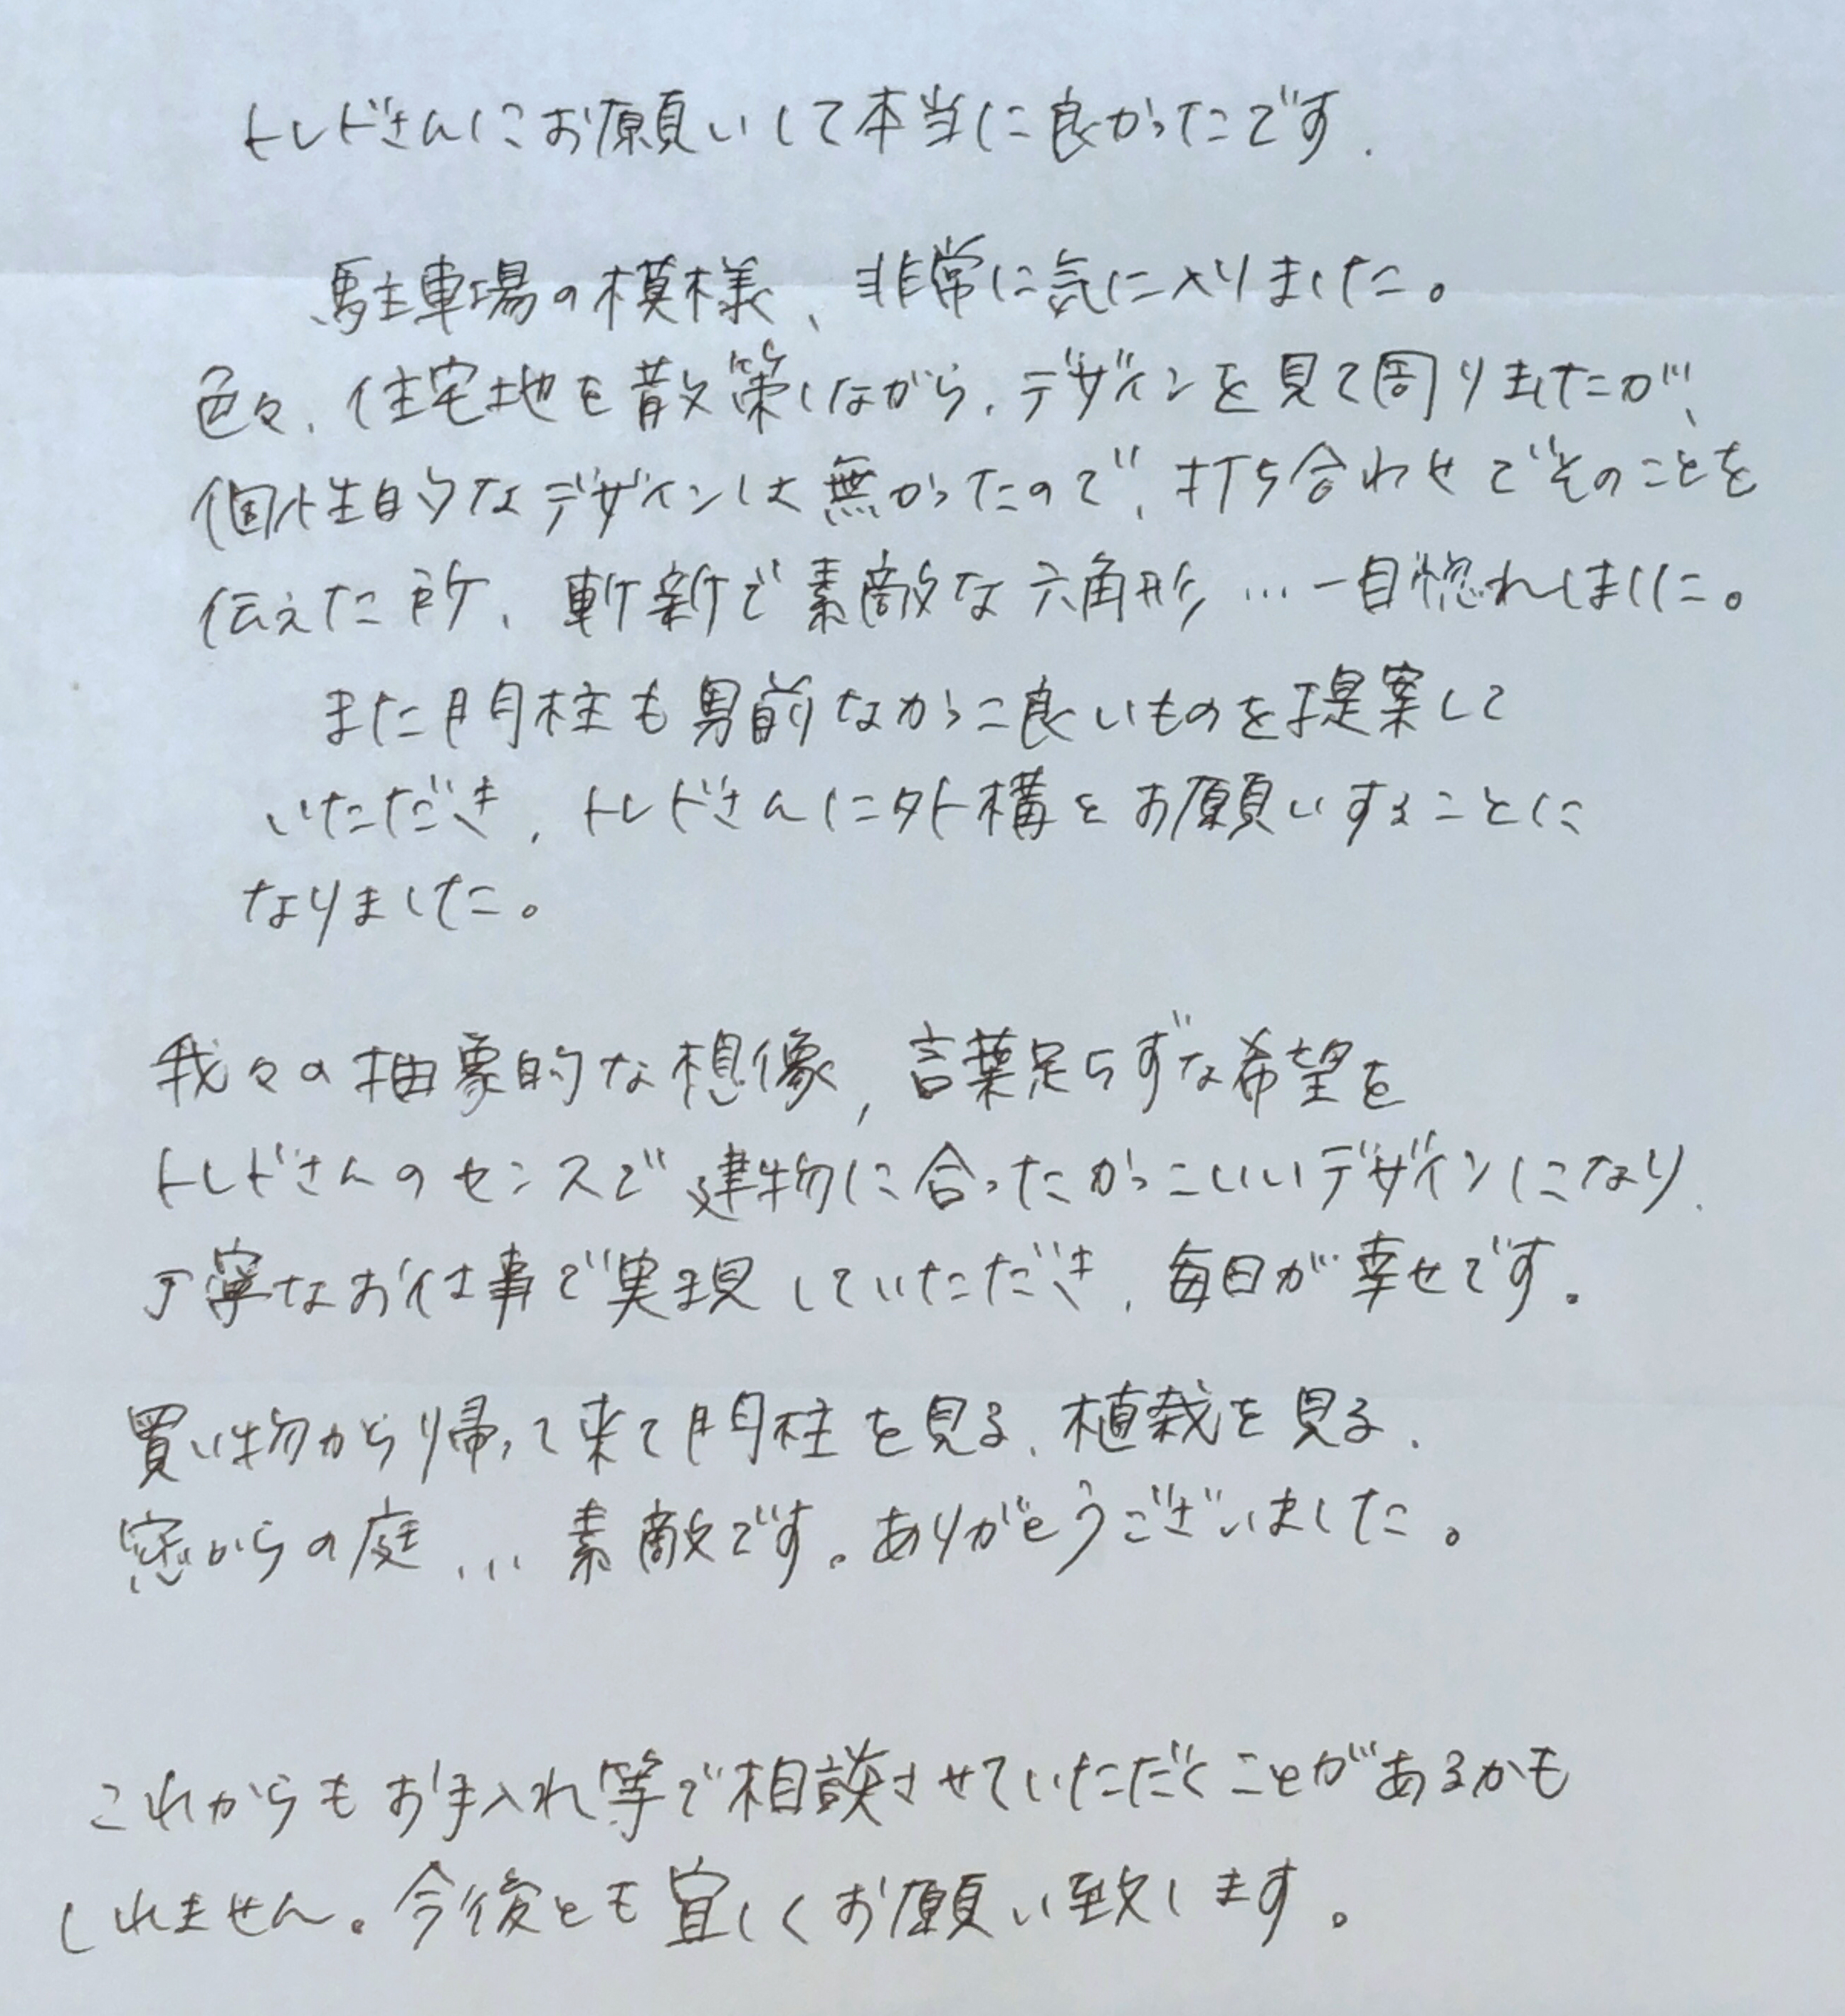 トレドさんにお願いして本当に良かったです.
駐車場の模様、非常に気に入りました。
色々、住宅地を散策しながら、デザインを見て周りましたが、
個性的なデザインは無かったので、打ち合わせでそのことを
伝えた所、斬新で素敵な六角形…一目惚れしました。
また門柱も男前なかっこ良いものを提案して
いただき、トレドさんに外構をお願いすることに
なりました。
我々の抽象的な想像,言葉足らずな希望を
トレドさんのセンスで建物に合ったかっこいいデザインになり、
丁寧なお仕事で実現していただき、毎日が幸せです。
買い物から帰って来て門柱を見る、植栽を見る、
窓からの庭...素敵です。ありがとうございました。
これからもお手入れ等で相談させていただくことがあるかも
しれません。今後とも宜しくお願い致します。